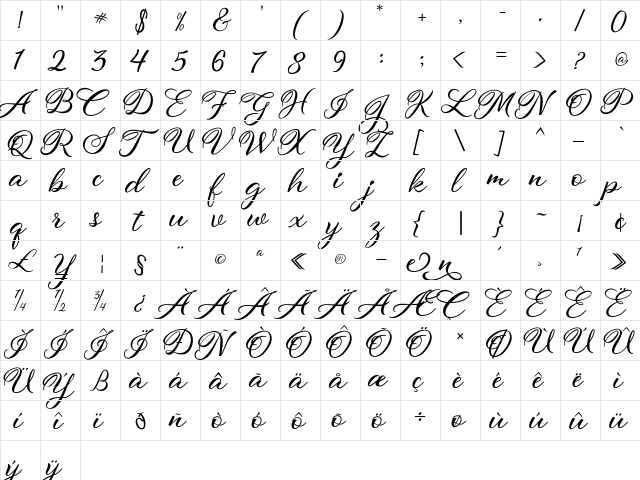 ! " # $ % & ' ( ) * + , - . / 0
1 2 3 4 5 6 7 8 9 : ; < = > ? @
A B C D E F G H I J K L M N O P
Q R S T U V W X Y Z [ \ ] ^ _ `
a b c d e f g h i j k l m n o p
q r s t u v w x y z { | } ~ ¡ ¢
£ ¥ ¦ § ¨ © ª « ® ¯ e n ´ ¸ ¹ »
¼ ½ ¾ ¿ À Á Â Ã Ä Å Æ C È É Ê Ë
Ì Í Î Ï Ð Ñ Ò Ó Ô Õ Ö × Ø Ù Ú Û
Ü Ý ß à á â ã ä å æ ç è é ê ë ì
í î ï ð ñ ò ó ô õ ö ÷ ø ù ú û ü
ý ÿ